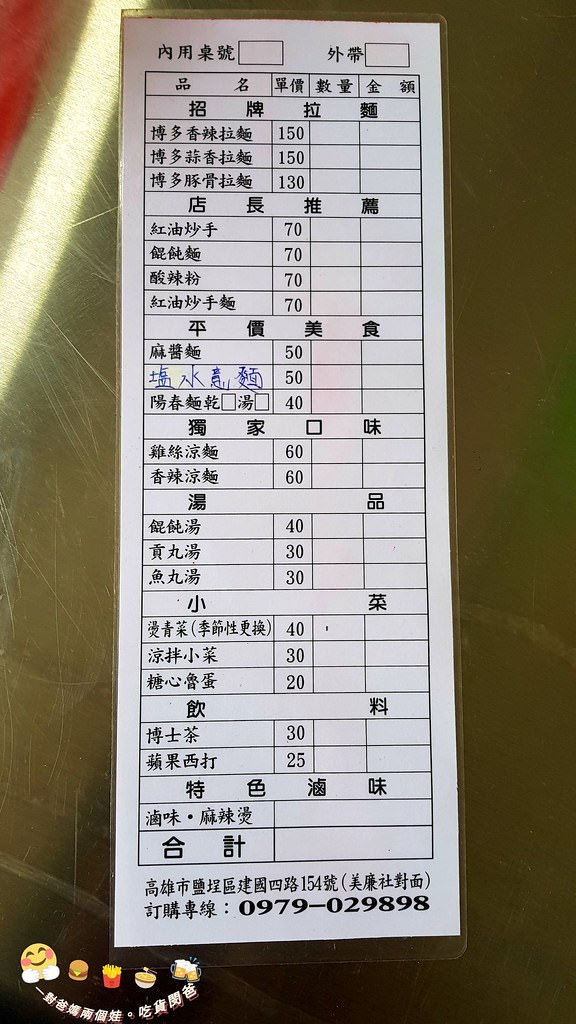 內用桌號 外帶
品名 單價 數量 金額
招牌拉麵
博多香辣拉麵 150
博多蒜香拉麵 150
博多豚骨拉麵 130
店長推薦
紅油炒手 70
餛飩麵 70
酸辣粉 70
紅油炒手麵 70
平價美食
麻醬麵 50
塩水意麵 50
陽春麵乾□湯□ 40
獨家口味
雞絲涼麵 60
香辣涼麵 60
湯品
餛飩湯 40
貢丸湯 30
魚丸湯 30
小菜
燙青菜(季節性更換) 40
涼拌小菜 30
糖心魯蛋 20
飲料
博士茶 30
蘋果西打 25
特色滷味
滷味·麻辣燙
合計
高雄市鹽埕區建國四路154號(美廉社對面)
訂購專線：0979-029898
一對爸媽兩個娃。吃貨閔爸